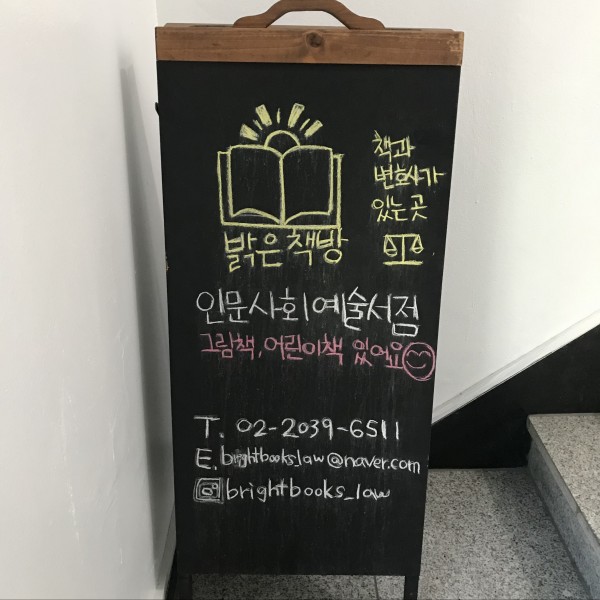 밝은책방
책과
변호사가
있는 곳
인문사회예술서점
그림책, 어린이책 있어요
T. 02-2039-6511
E. brightbooks_law@naver.com
brightbooks_law